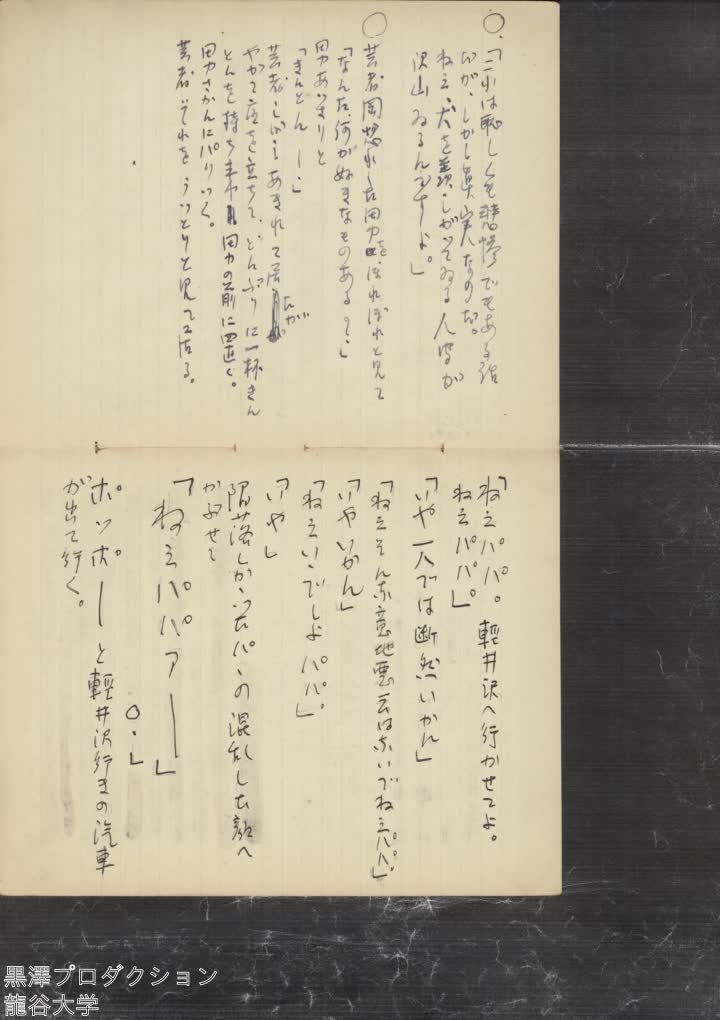 ○
「これは恥しくも悲惨でもある話
だが、しかし真実なのだ。
ねえ、犬を羨しがってゐる人間が
沢山ゐるんですよ。」
○
芸者岡惚れした男をほれぼれと見て
「なんだ、何が好きなものあるの、」
男あっさりと
「きんとん―。」
芸者しばらくあきれて居たが
やがて座を立ちて、どんぶりに一杯きん
とんを持ち来り男の前に置く。
男さかんにパクつく。
芸者それをうっとりと見て居る。
「ねえパパ。軽井沢へ行かせてよ。
ねえパパ。」
「いや一人では断然いかん」
「ねえそんな意地悪云はないでねえパパ。」
「いやいかん」
「ねえいいでしよパパ。」
「いや」
陥落しかかったパパの混乱した顔へ
かぶせて
「ねえパパァ――」
○。」
ポッポーと軽井沢行きの汽車
が出て行く。
黒澤プロダクション
龍谷大学